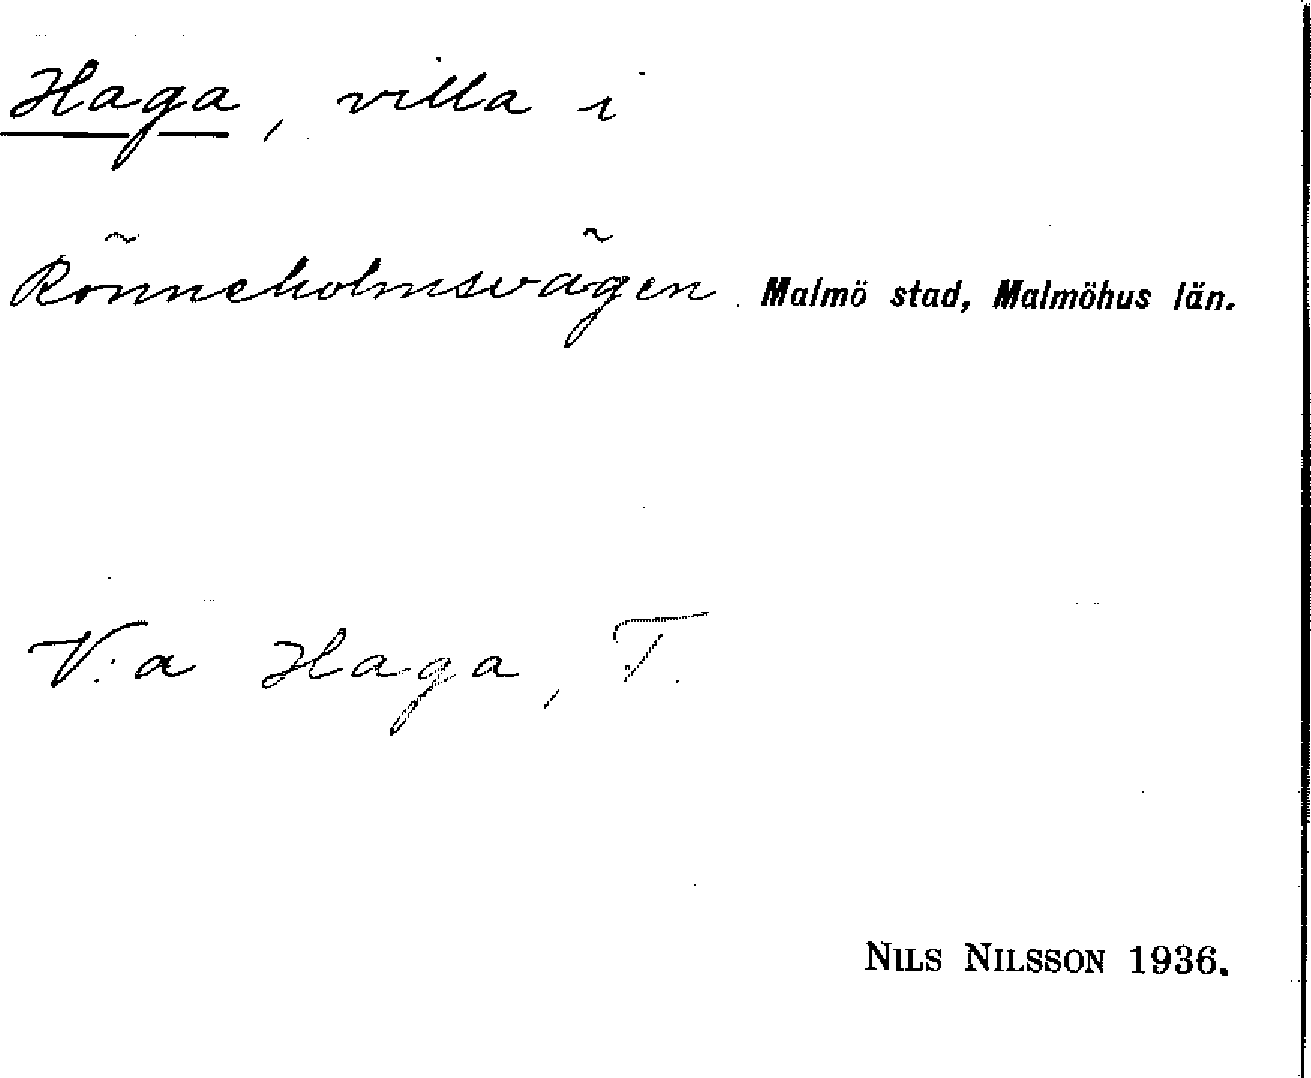 Haga, villa i
Rönneholmsvägen. Malmö stad, Malmöhus län.
V:a Haga, T.
NILS NILSSON 1936.